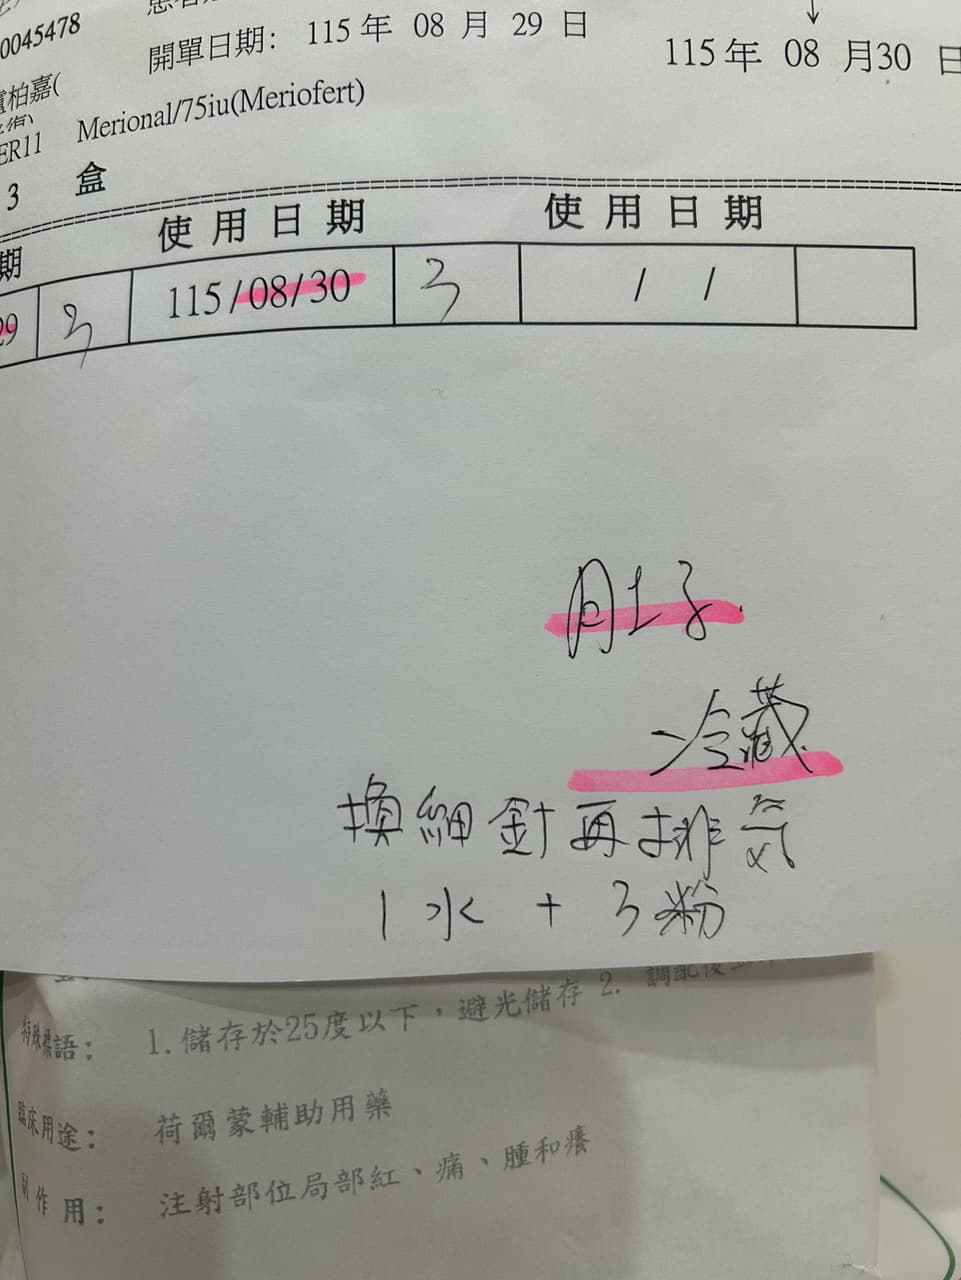 0045478
開單日期: 115 年 08 月 29 日
↓
115 年 08 月30 日
柏嘉(
ER11 Merional/75iu(Meriofert)
3 盒
期 使用日期 使用日期
29 3 115/08/30 3 / /
肚子.
冷藏
換細針再排氣
1水 + 3粉
特殊標語: 1. 儲存於25度以下，避光儲存 2. 調配後
臨床用途: 荷爾蒙輔助用藥
副作用: 注射部位局部紅、痛、腫和癢